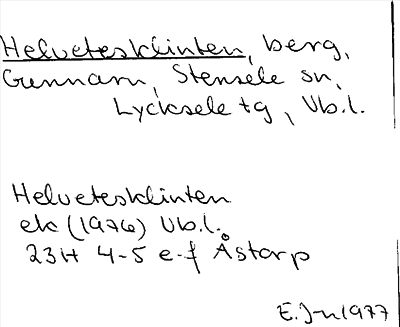 Helvetesklinten, berg,
Gunnarn, Stensele sn,
Lycksele tg, Vb.l.
Helvetesklinten
ek (1976) Vb.l.
23H 4-5 e-f Åstorp
E.J-n 1977